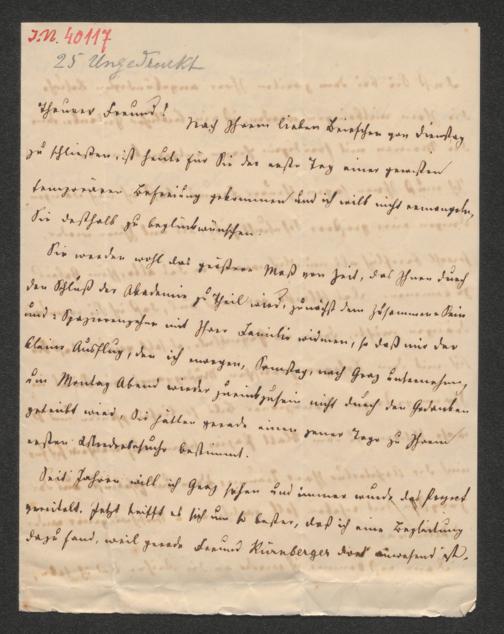 I.N. 40117
25 Ungedruckt
Theurer Freund!
Nach Ihrem lieben Briefchen von Dienstag
zu schließen, ist heute für Sie der erste Tag einer gewissen
temporären Befreiung gekommen und ich will nicht ermangeln,
Sie deshalb zu beglückwünschen.
Sie werden wohl das größere Maß von Zeit, das Ihnen durch
den Schluß der Akademie zu Theil wird, zunächst dem Zusammensein
und Spazierengehen mit Ihrer Familie widmen, so daß mir der
kleine Ausflug, den ich morgen, Samstag, nach Graz unternehme,
um Montag Abend wieder zurückzusein nicht durch den Gedanken
getrübt wird, Sie hätten gerade einen jener Tage zu Ihrem
ersten bestimmt.
Seit Jahren will ich Graz sehen und immer wurde das Project
vereitelt. Jetzt trifft es sich um so besser, daß ich eine Begleitung
dazu fand, weil gerade Freund Kürnberger dort anwesend ist.